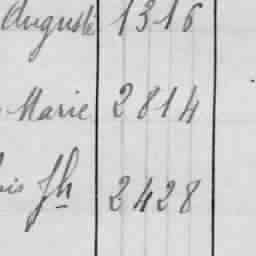 Auguste 1316
Marie 2814
is Jh 2428